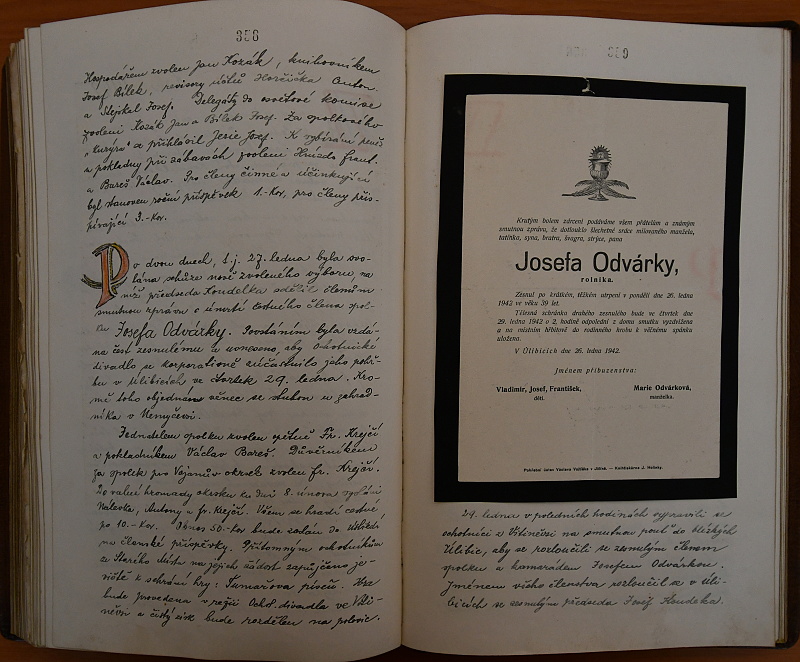 358
Hospodářem zvolen Jan Kozák, knihovníkem
Josef Bílek, revisory účtů Horčička Anton.
a Stejskal Josef. Delegáty do osvětové komise
zvoleni Kozák Jan a Bílek Josef. Za spolkového
"kurýra" a přihlásil Jerie Josef. K vybírání peněz
a pokladny při zábavách zvoleni Hnízdo Frant.
a Bareš Václav. Pro členy činné a účinkující
byl stanoven roční příspěvek 1.-Kor, pro členy přis-
pívající 3.-Kor.
Po dvou dnech, t.j. 27. ledna byla svo-
lána schůze nově zvoleného výboru, na
níž předseda Koudelka sdělil členům
smutnou zprávu o úmrtí čestného člena spol-
ku Josefa Odvárky. Povstáním byla vzdá-
na čest zesnulému a usneseno, aby ochotnické
divadlo se korporativně súčastnilo jeho pohř-
bu v Úlibicích ve čtvrtek 29. ledna. Kro-
mě toho objednán věnec se stuhou u zahrad-
níka v Nemyčevsi.
Jednatelem spolku zvolen opětně Fr. Krejčí
a pokladníkem Václav Bareš. Důvěrníkem
za spolek pro Vojanův okrsek zvolen fr. Krejčí.
Do valné hromady okrsku ku dni 8. února vysláni
Nálevka, Antony a fr. Krejčí. Všem se hradí cestné
po 10.-Kor. Obnos 50.-Kor bude zaslán do
na členské příspěvky. Přítomným ochotníkům
ze Starého Místa na jejich žádost zapůjčeno je-
viště k sehrání hry: Šumařova píseň. Hra
bude provedena v režii Ochot. divadla ve Viti-
něvsi a čistý zisk bude rozdělen na polovic.
359
Krutým bolem zdrceni podáváme všem přátelům a známým
smutnou zprávu, že dotlouklo šlechetné srdce milovaného manžela,
tatínka, syna, bratra, švagra, strýce, pana
Josefa Odvárky,
rolníka.
Zesnul po krátkém, těžkém utrpení v pondělí dne 26. ledna
1942 ve věku 39 let.
Tělesná schránka drahého zesnulého bude ve čtvrtek dne
29. ledna 1942 o 2. hodině odpolední z domu smutku vyzdvižena
a na místním hřbitově do rodinného hrobu k věčnému spánku
uložena.
V Úlibicích dne 26. ledna 1942.
Jménem příbuzenstva:
Vladimír, Josef, František,
děti.
Marie Odvárková,
manželka.
Pohřební ústav Václava Vojtíška v Jičíně. — Knihtiskárna J.
29. ledna v poledních hodinách vypravili se
ochotníci z Vitiněvsi na smutnou pouť do blízkých
Úlibic, aby se rozloučili se zesnulým členem
spolku a kamarádem Josefem Odvárkou.
Jménem všeho členstva rozloučil se v Úli-
bicích se zesnulým předseda Josef Koudelka.